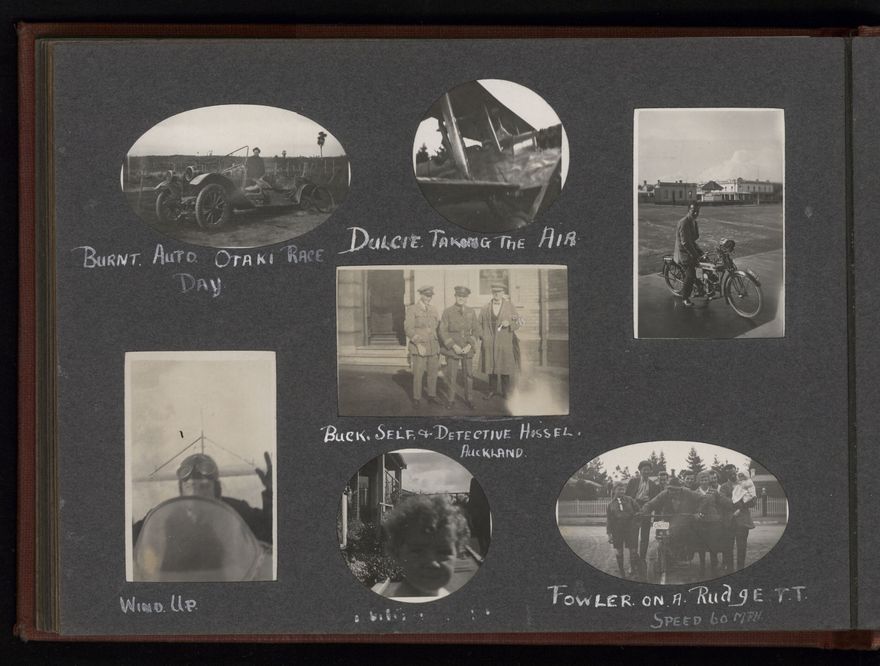 BURNT. AUTO. OTAKI RACE
DAY
DULCIE. TAKING THE AIR
BUCK. SELF. & DETECTIVE HISSEL.
AUCKLAND.
WIND. UP.
FOWLER. ON. A. RUDGE T.T.
SPEED 60 MPH.